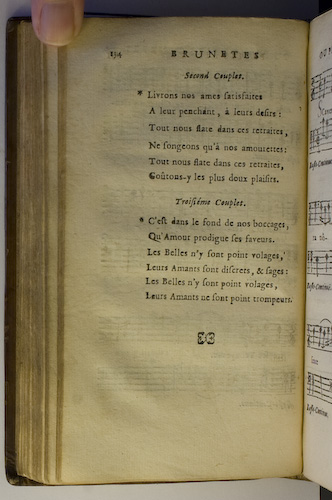 194 BRUNETES
Second Couplet.
* Livrons nos ames satisfaites
A leur penchant, à leurs desirs :
Tout nous flate dans ces retraites,
Ne songeons qu'à nos amourettes :
Tout nous flate dans ces retraites,
Goûtons-y les plus doux plaisirs.
Troisiéme Couplet.
* C'est dans le fond de nos boccages,
Qu'Amour prodigue ses faveurs.
Les Belles n'y sont point volages,
Leurs Amants sont discrets, & sages :
Les Belles n'y sont point volages,
Leurs Amants ne sont point trompeurs.
Basse-Continue.
Basse-Continue.